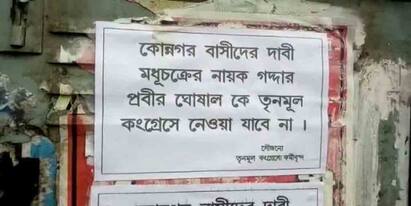 কোন্নগর বাসীদের দাবী
মধূচক্রের নায়ক গদ্দার
প্রবীর ঘোষাল কে তৃনমূল
কংগ্রেসে নেওয়া যাবে না ।
সৌজন্যে
তৃনমূল কংগ্রেসের কর্মীবৃন্দ
কোন্নগর বাসীদের দাবী